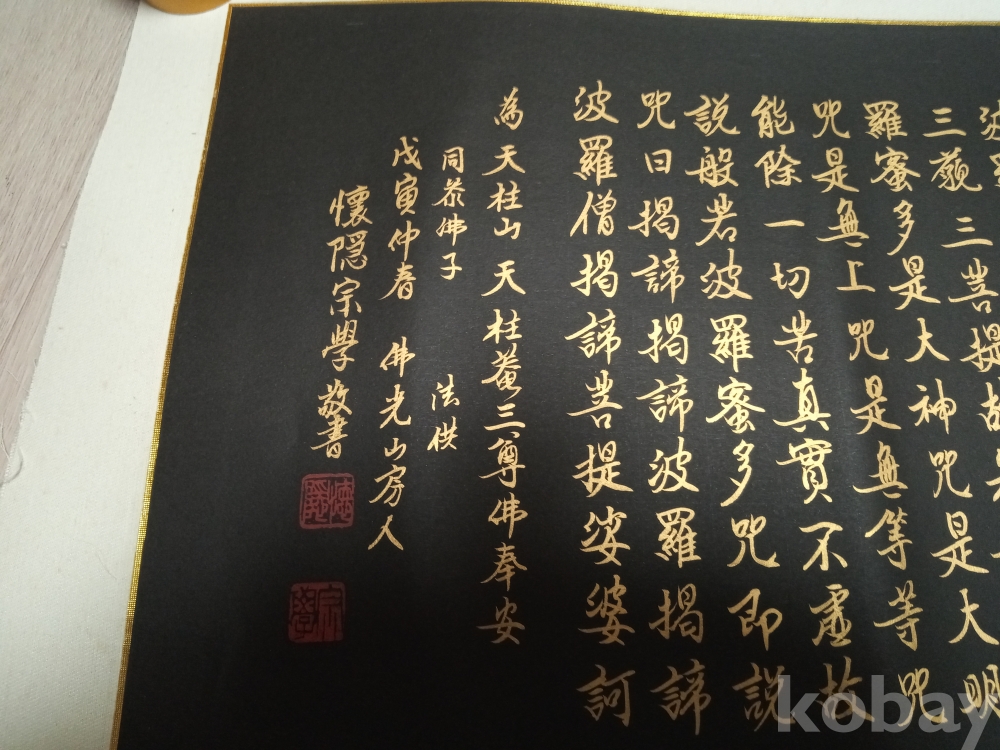 三藐三菩提故
羅蜜多是大神咒是大明
咒是無上咒是無等等咒
能除一切苦真實不虛故
說般若波羅蜜多咒即說
咒曰揭諦揭諦波羅揭諦
波羅僧揭諦菩提娑婆訶
為天柱山天柱菴三尊佛奉安
同參佛子 法供
戊寅仲春 佛光山房人
懷隱宗學敬書
懷隱
宗學
kobay